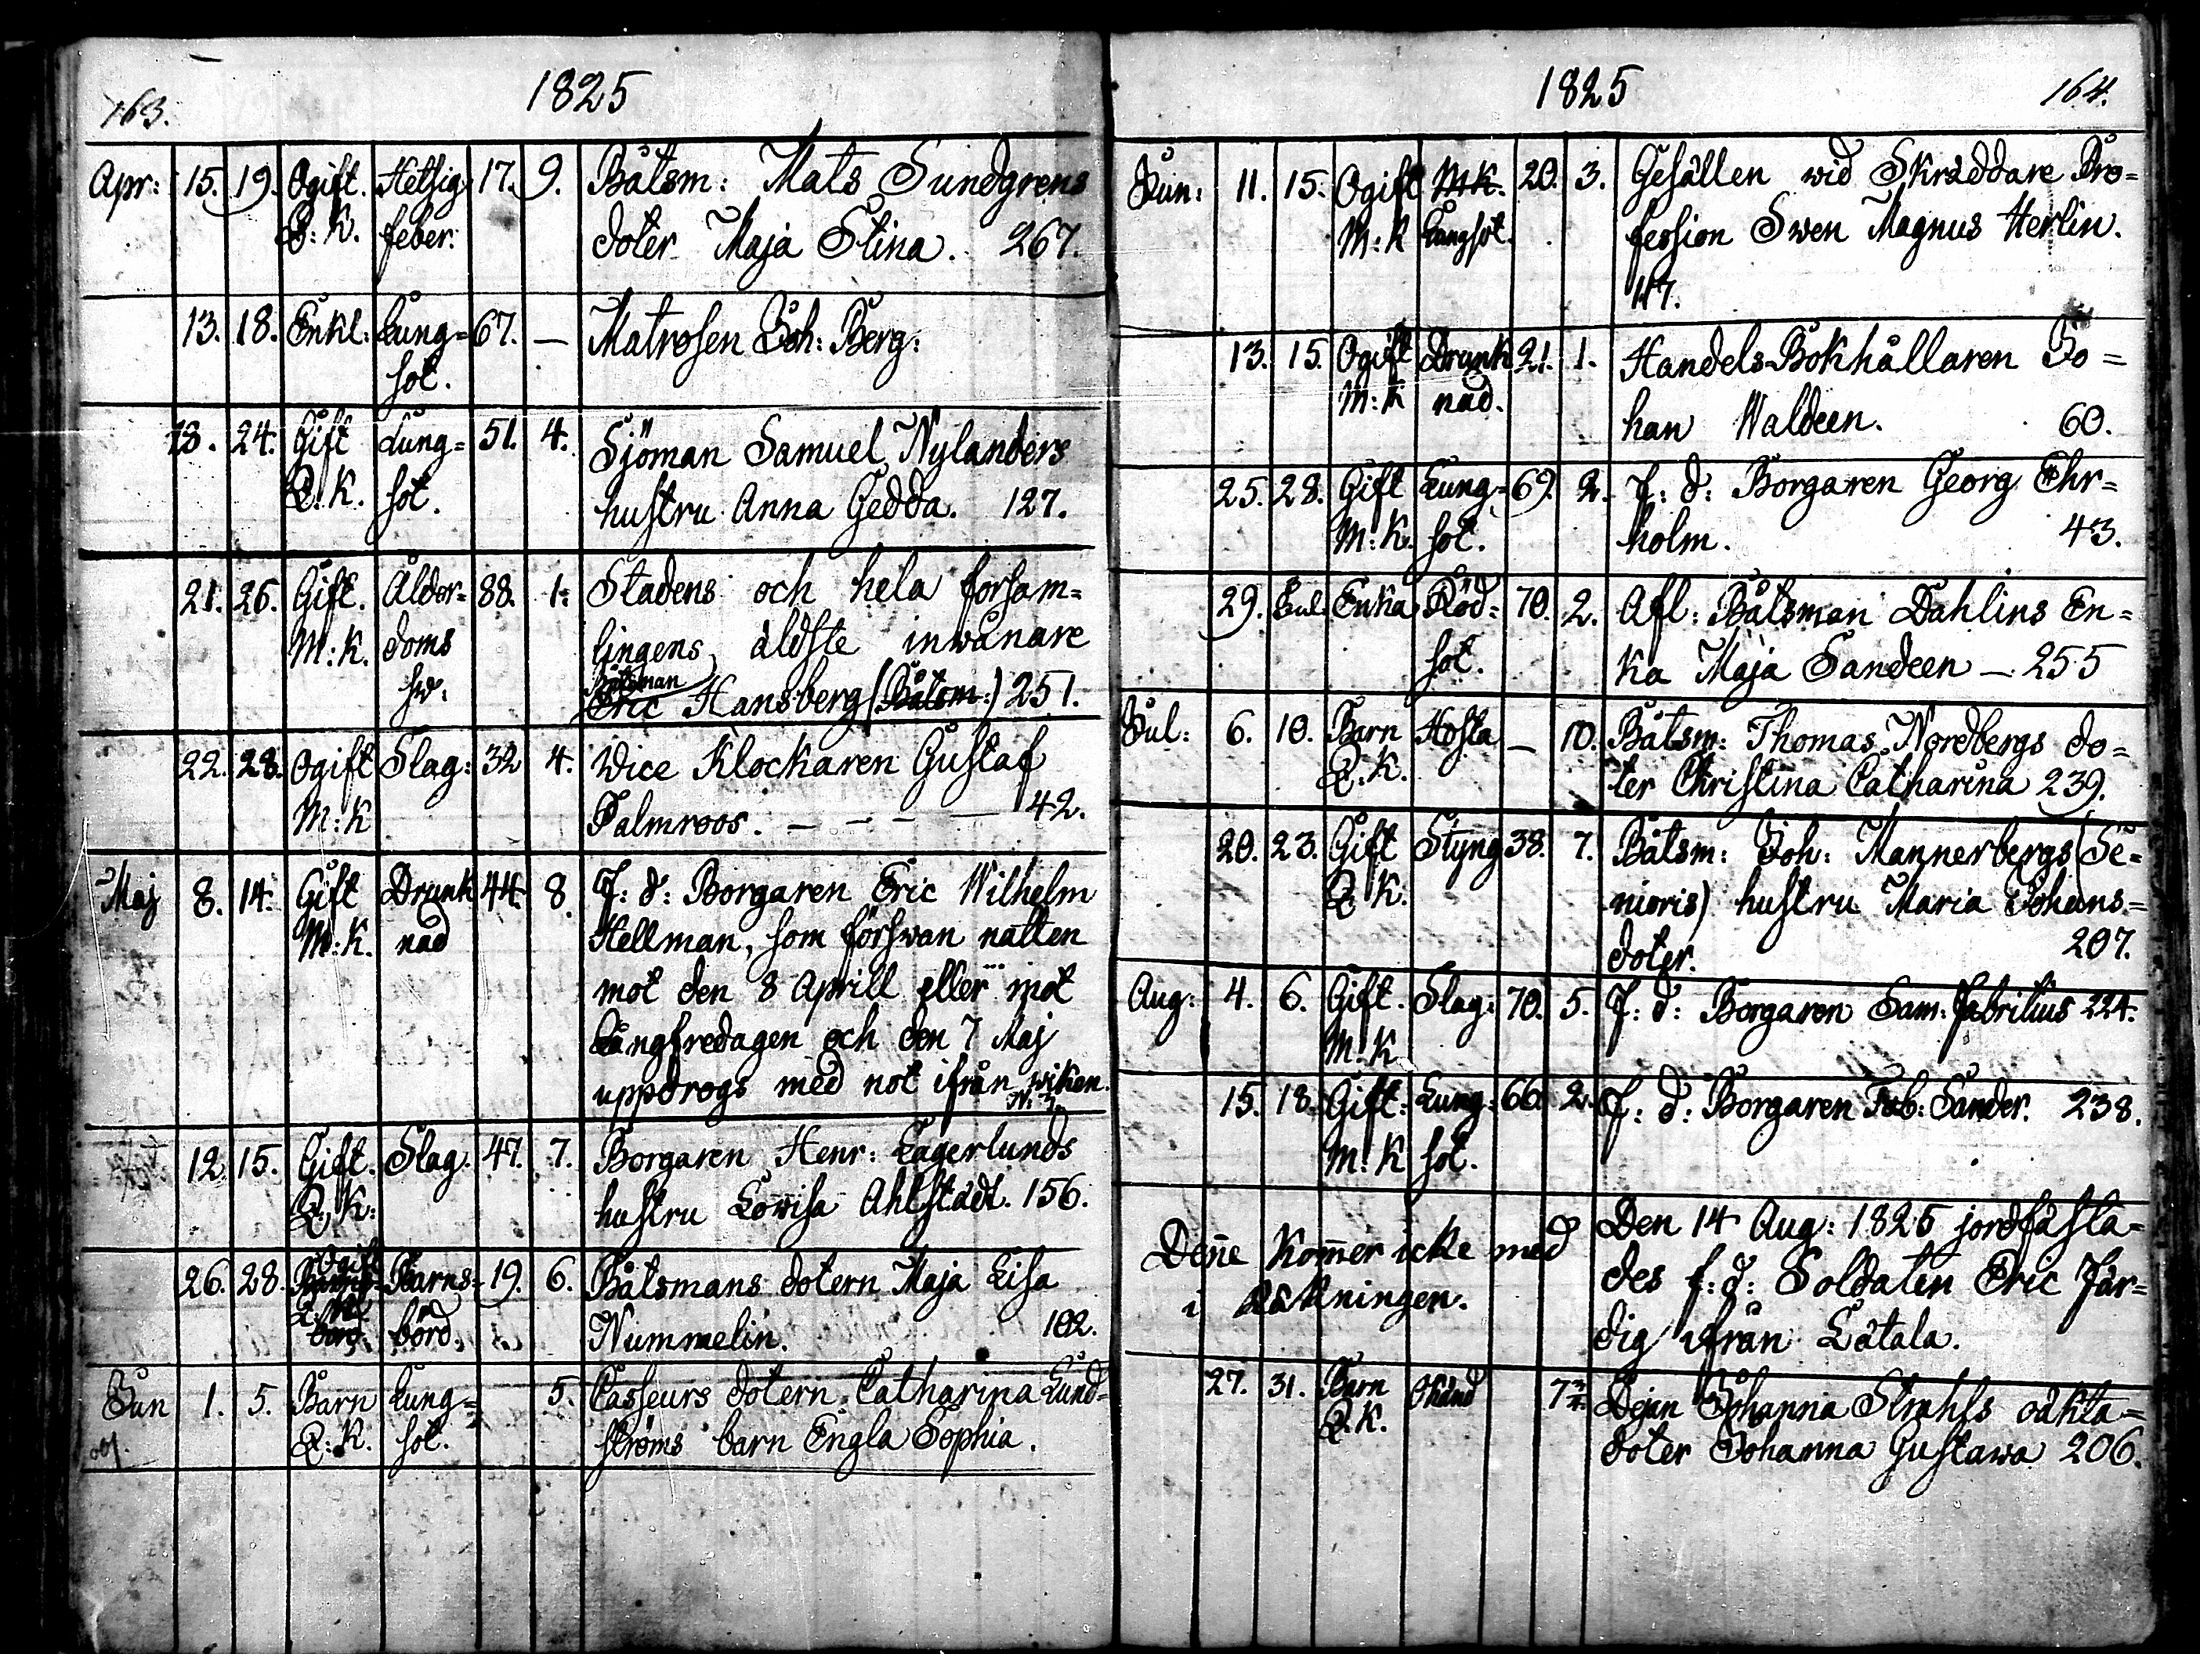 163.
1825
Apr: 15. 19. Ogift. Hetsig 17. 9. Båtsm: Mats Sundgrens
Q: K. feber. doter Maja Stina. 267.
13. 18. Enkl: Lung= 67. — Matrosen Joh: Berg:
sot.
18. 24. Gift Lung= 51. 4. Sjöman Samuel Nylanders
Q: K. sot. hustru Anna Gedda. 127.
21. 26. Gift. Ålder= 88. 1. Stadens och hela försam=
M: K. doms lingens äldste inwånare
sw: Båtsman
Eric Hansberg (Båtsm:) 251.
22. 28. Ogift Slag: 32 4. Wice Klockaren Gustaf
M: K Palmroos. — — — — 42.
Maj 8. 14. Gift Drunk 44. 8. F: d: Borgaren Eric Wilhelm
M: K. nad Hellman, som förswan natten
mot den 8 Aprill eller mot
Långfredagen och den 7 Maj
uppdrogs med not ifrån wiken.
12. 15. Gift. Slag. 47. 7. Borgaren Henr: Lagerlunds
Q: K: hustru Lowisa Ahlstädt. 156.
26. 28. Ogift Barns= 19. 6. Båtsmans dotern Maja Lisa
börd. Nummelin. 102.
Jun 1. 5. Barn Lung= 5. Casseurs dotern Catharina Lund=
Q: K. sot. ströms barn Engla Sophia.
1825
164.
Jun: 11. 15. Ogift M K. 20. 3. Gesällen wid Skräddare Pro=
M: K Lungsot. fession Swen Magnus Herlin.
117.
13. 15. Ogift Drunk 21. 1. Handels-Bokhållaren Jo=
M: K nad. han Waldeen. 60.
25. 28. Gift Lung= 69. 2. F: d: Borgaren Georg Ehr=
M: K. sot. holm. 43.
29. Jul. Enka Röd= 70. 2. Afl: Båtsman Dahlins En=
sot. ka Maja Sandeen — 255
Jul: 6. 10. Barn Hosta — 10. Båtsm: Thomas Nordbergs do=
Q: K. ter Christina Catharina 239.
20. 23. Gift Styng 38. 7. Båtsm: Joh: Mannerbergs (Se=
Q: K. nioris) hustru Maria Johans=
doter. 207.
Aug: 4. 6. Gift. Slag: 70. 5. F: d: Borgaren Sam: Fabritius 224.
M: K
15. 18. Gift: Lung= 66. 2. F: d: Borgaren Tob: Sander. 238.
M: K sot.
Den̄e kom̄er icke med
i räkningen.
Den 14 Aug: 1825 jordfästa=
des f: d: Soldaten Eric Fär=
dig ifrån Låtala.
27. 31. Barn Okänd 7 Pejan Johanna Strahls oäkta=
Q: K. doter Johanna Gustawa 206.